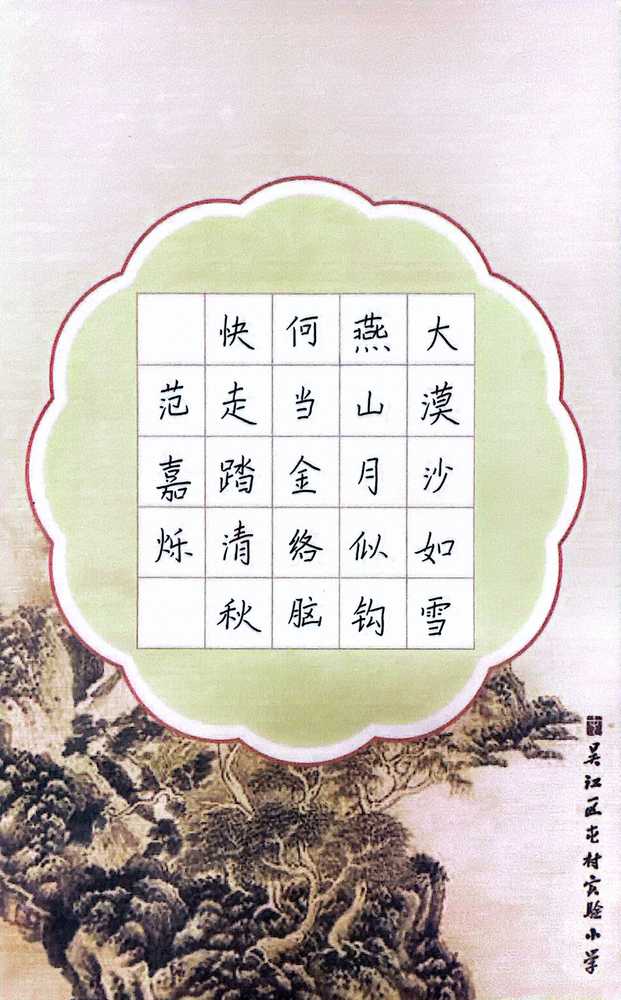 大漠沙如雪
燕山月似钩
何当金络脑
快走踏清秋
范嘉烁
吴江区屯村实验小学